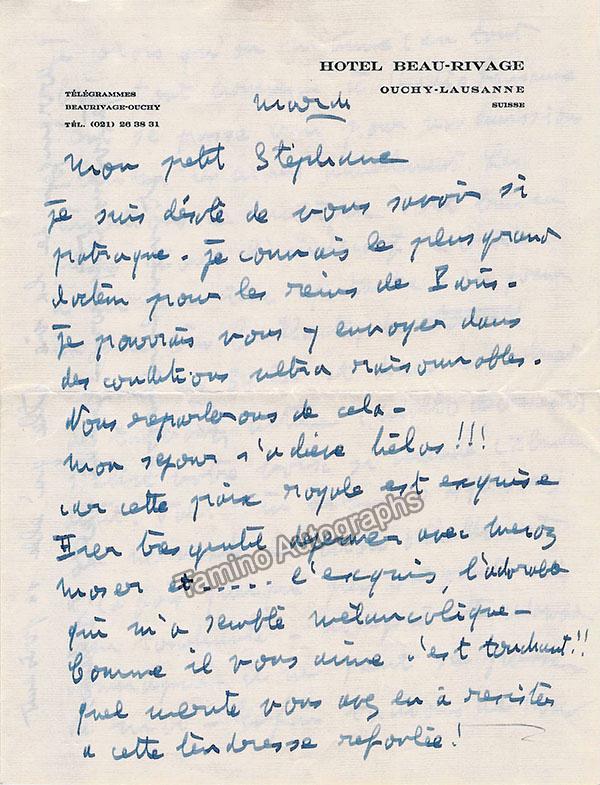 HOTEL BEAU-RIVAGE
OUCHY-LAUSANNE
SUISSE
TÉLÉGRAMMES
BEAURIVAGE-OUCHY
TÉL. (021) 26 38 31
mardi
Mon petit Stéphane
je suis désolé de vous savoir si
patraque. je connais le plus grand
docteur pour les reins de Paris.
je pourrais vous y envoyer dans
des conditions ultra raisonnables.
Nous reparlerons de cela -
mon séjour s'achève hélas !!!
car cette paix royale est exquise
Hier très gentil déjeuner avec
moser et ..... l'exquis, l'adorable
qui m'a semblé mélancolique -
Comme il vous aime c'est touchant !!
quel mérite vous avez eu à résister
à cette tendresse refoulée !
Tamino Autographs